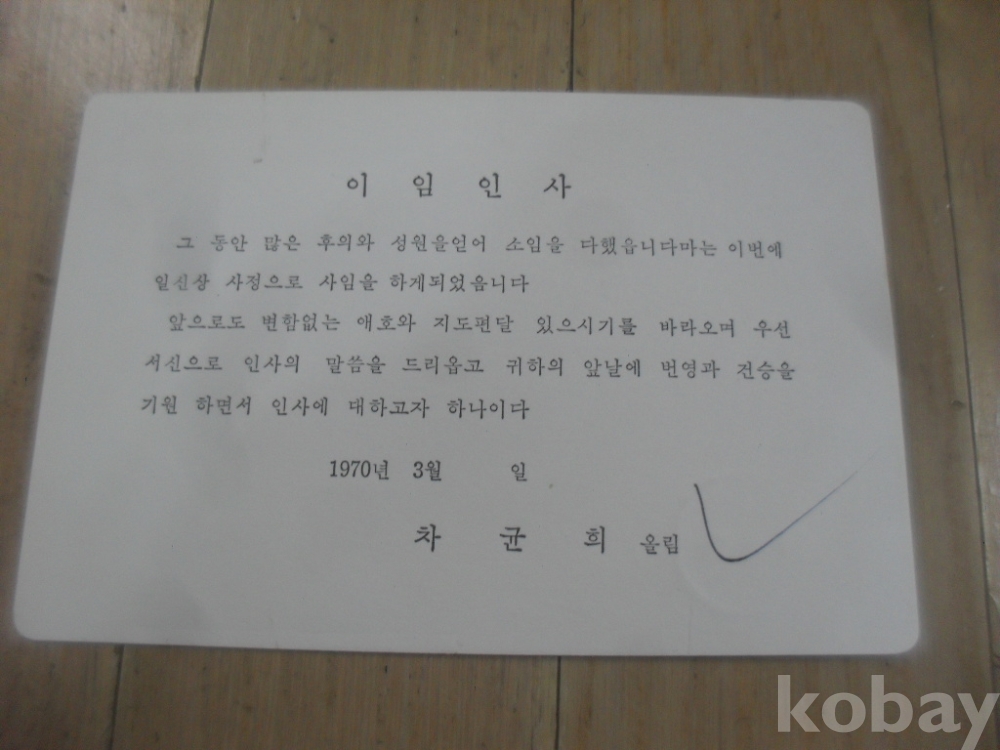 이 임 인 사
그 동안 많은 후의와 성원을얻어 소임을 다했읍니다마는 이번에
일신상 사정으로 사임을 하게되었읍니다
앞으로도 변함없는 애호와 지도편달 있으시기를 바라오며 우선
서신으로 인사의 말씀을 드리옵고 귀하의 앞날에 번영과 건승을
기원 하면서 인사에 대하고자 하나이다
1970년 3월 일
차 균 희 올림
kobay